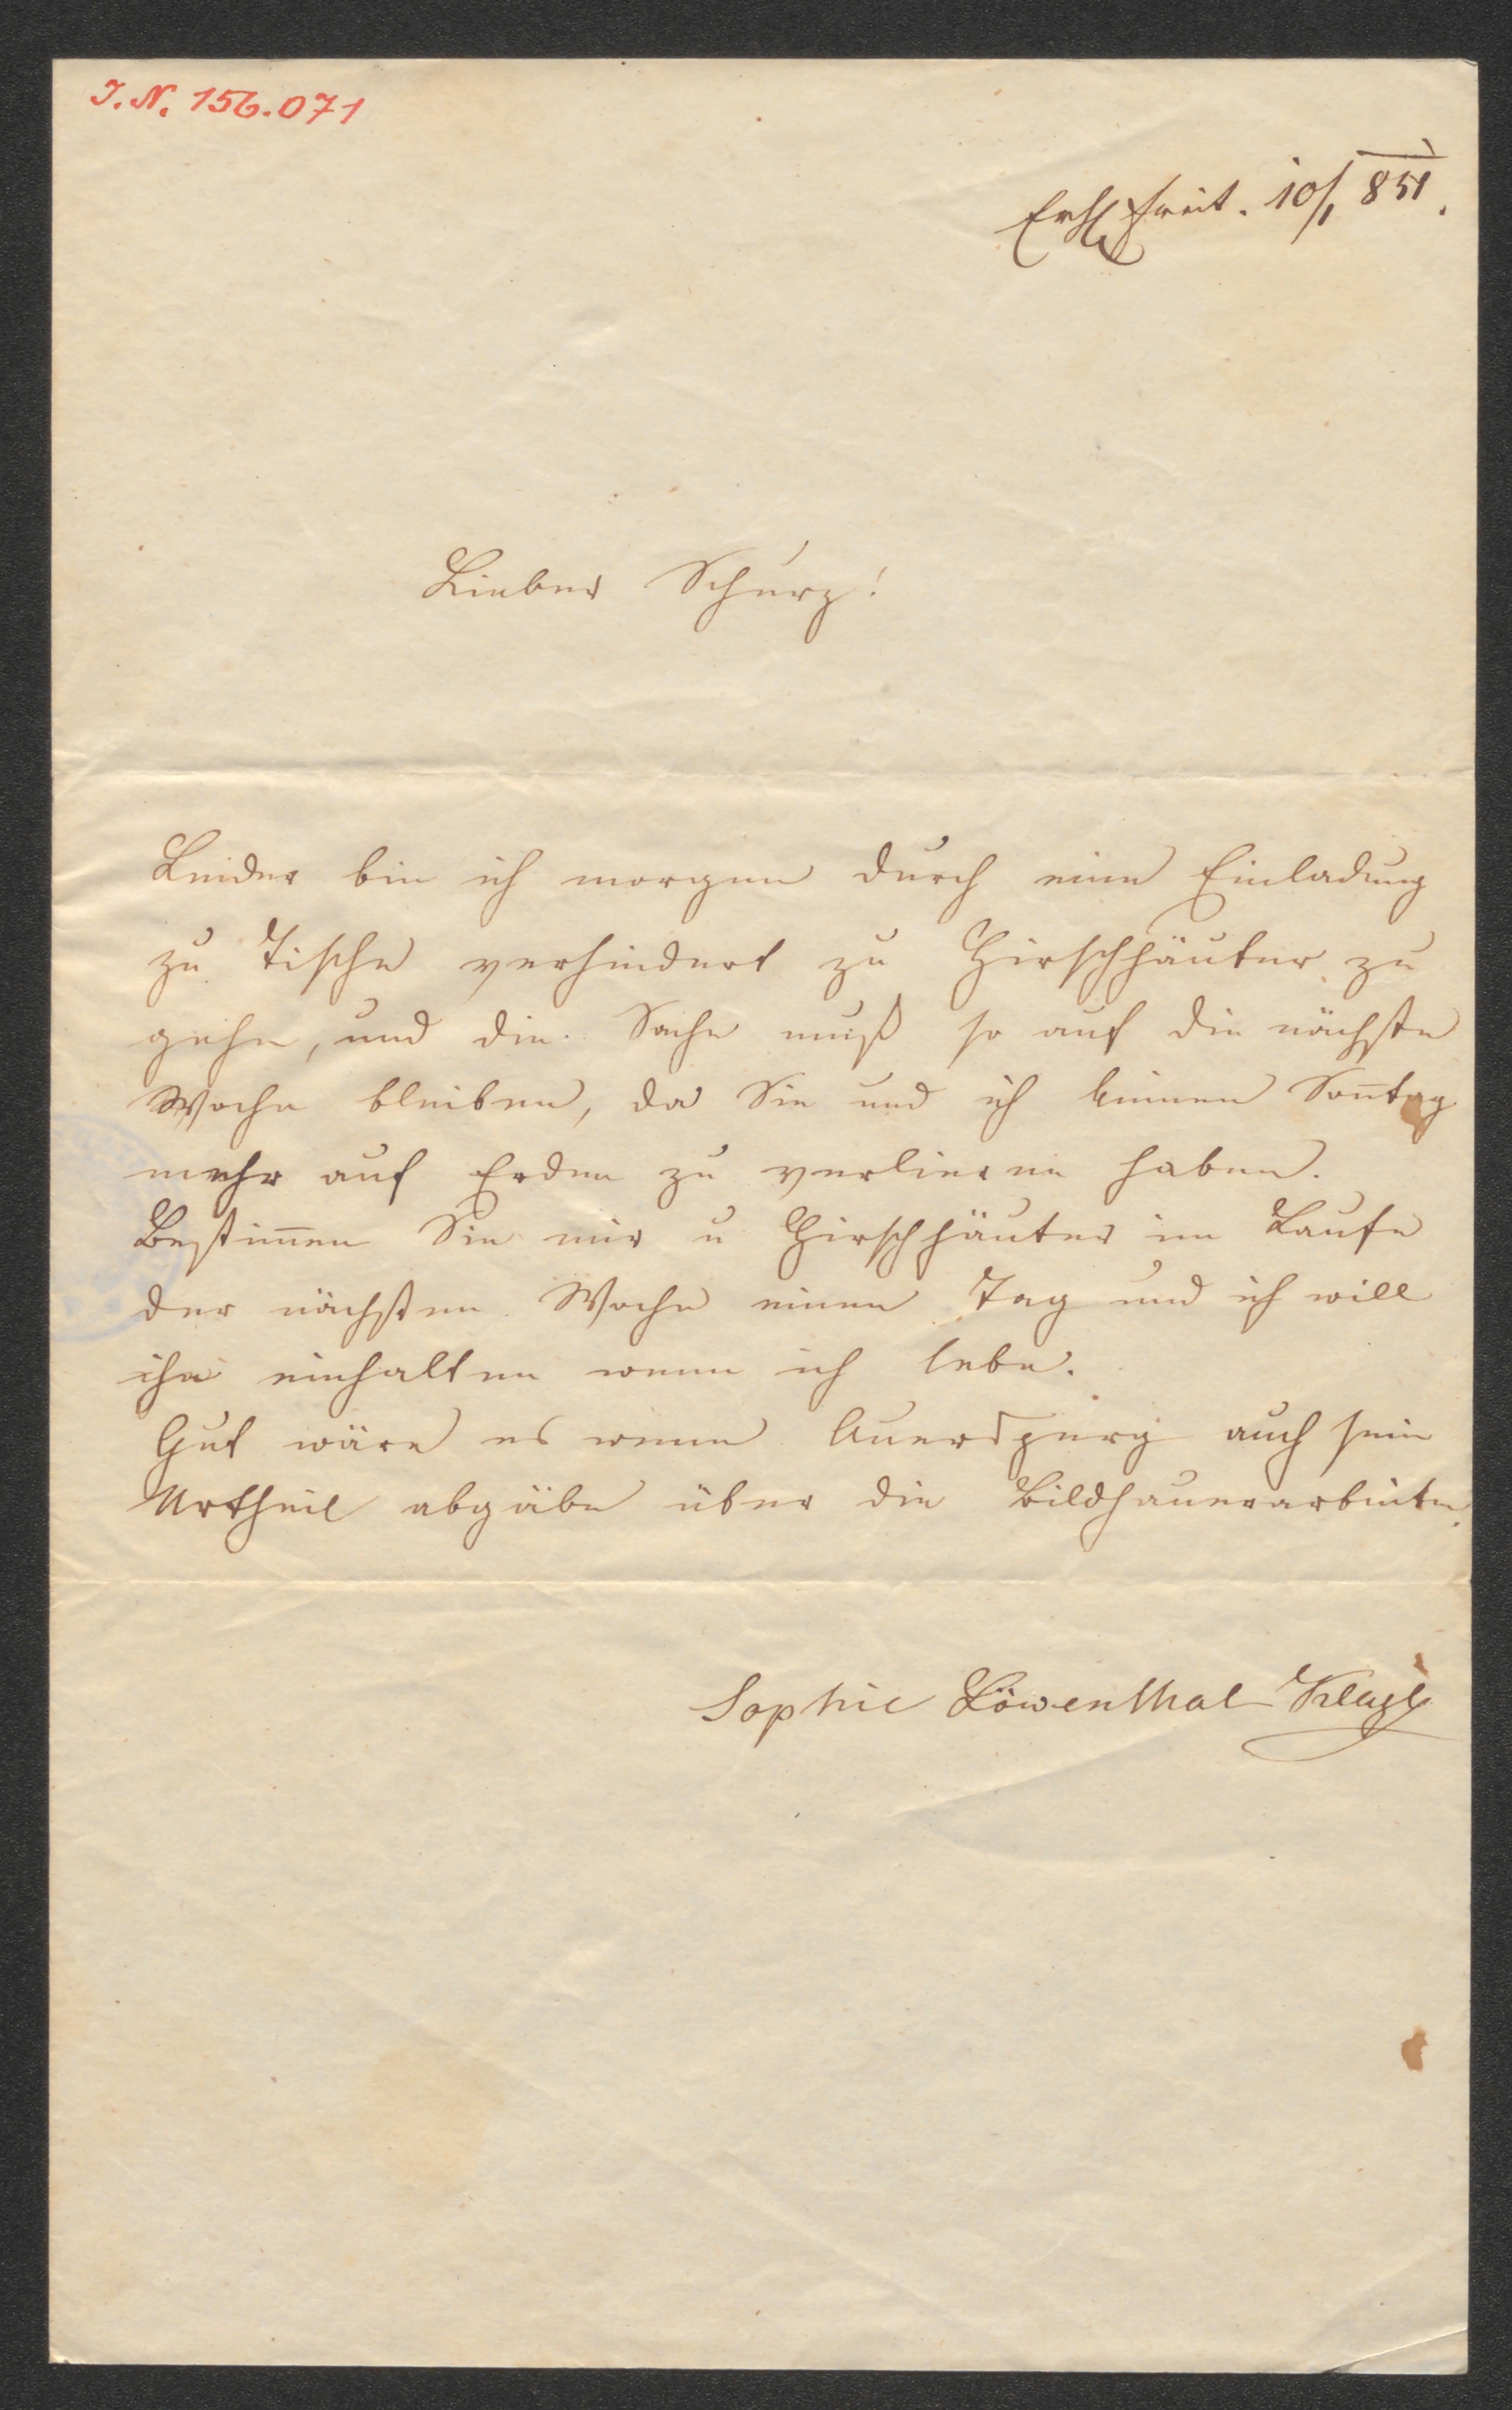 J. N. 156.071
Erh. Freit. 10/1 851.
Lieber Schurz!
Leider bin ich morgen durch eine Einladung
zu Tische verhindert zu Hirschhäuter zu
gehn, und die Sache muß so auf die nächste
Woche bleiben, da Sie und ich keinen Soñtag
mehr auf Erden zu verlieren haben.
Bestim̃en Sie mir u Hirschhäuter im Laufe
der nächsten Woche einen Tag und ich will
ihn einhalten wenn ich lebe.
Gut wäre es wenn Auersperg auch sein
Urtheil abgäbe über die Bildhauerarbeiten.
Sophie Löwenthal Kleyle